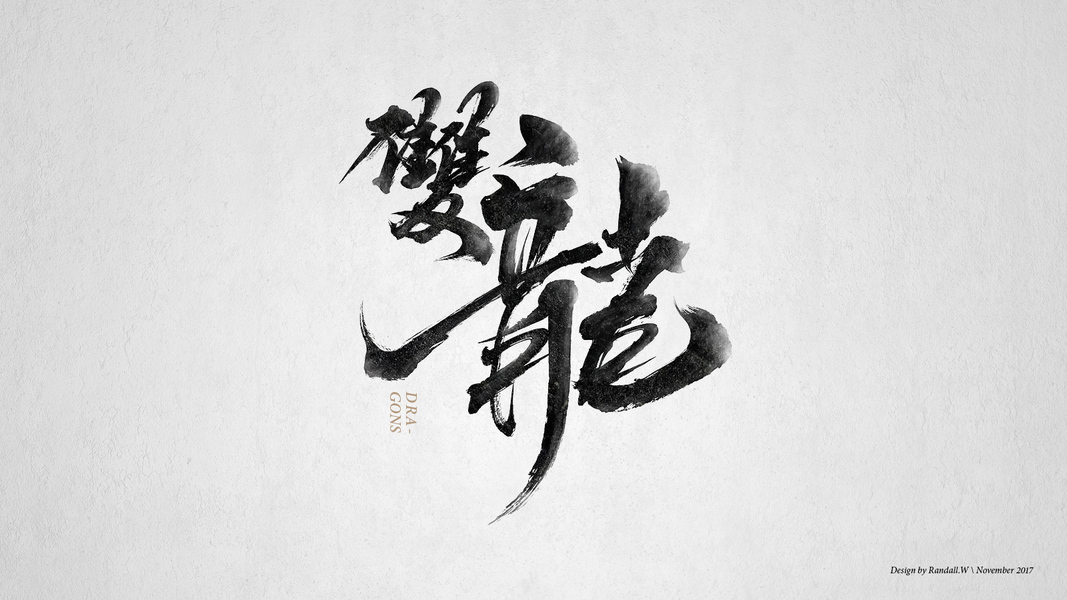 雙龍
DRA-
GONS
Design by Randall.W \ November 2017